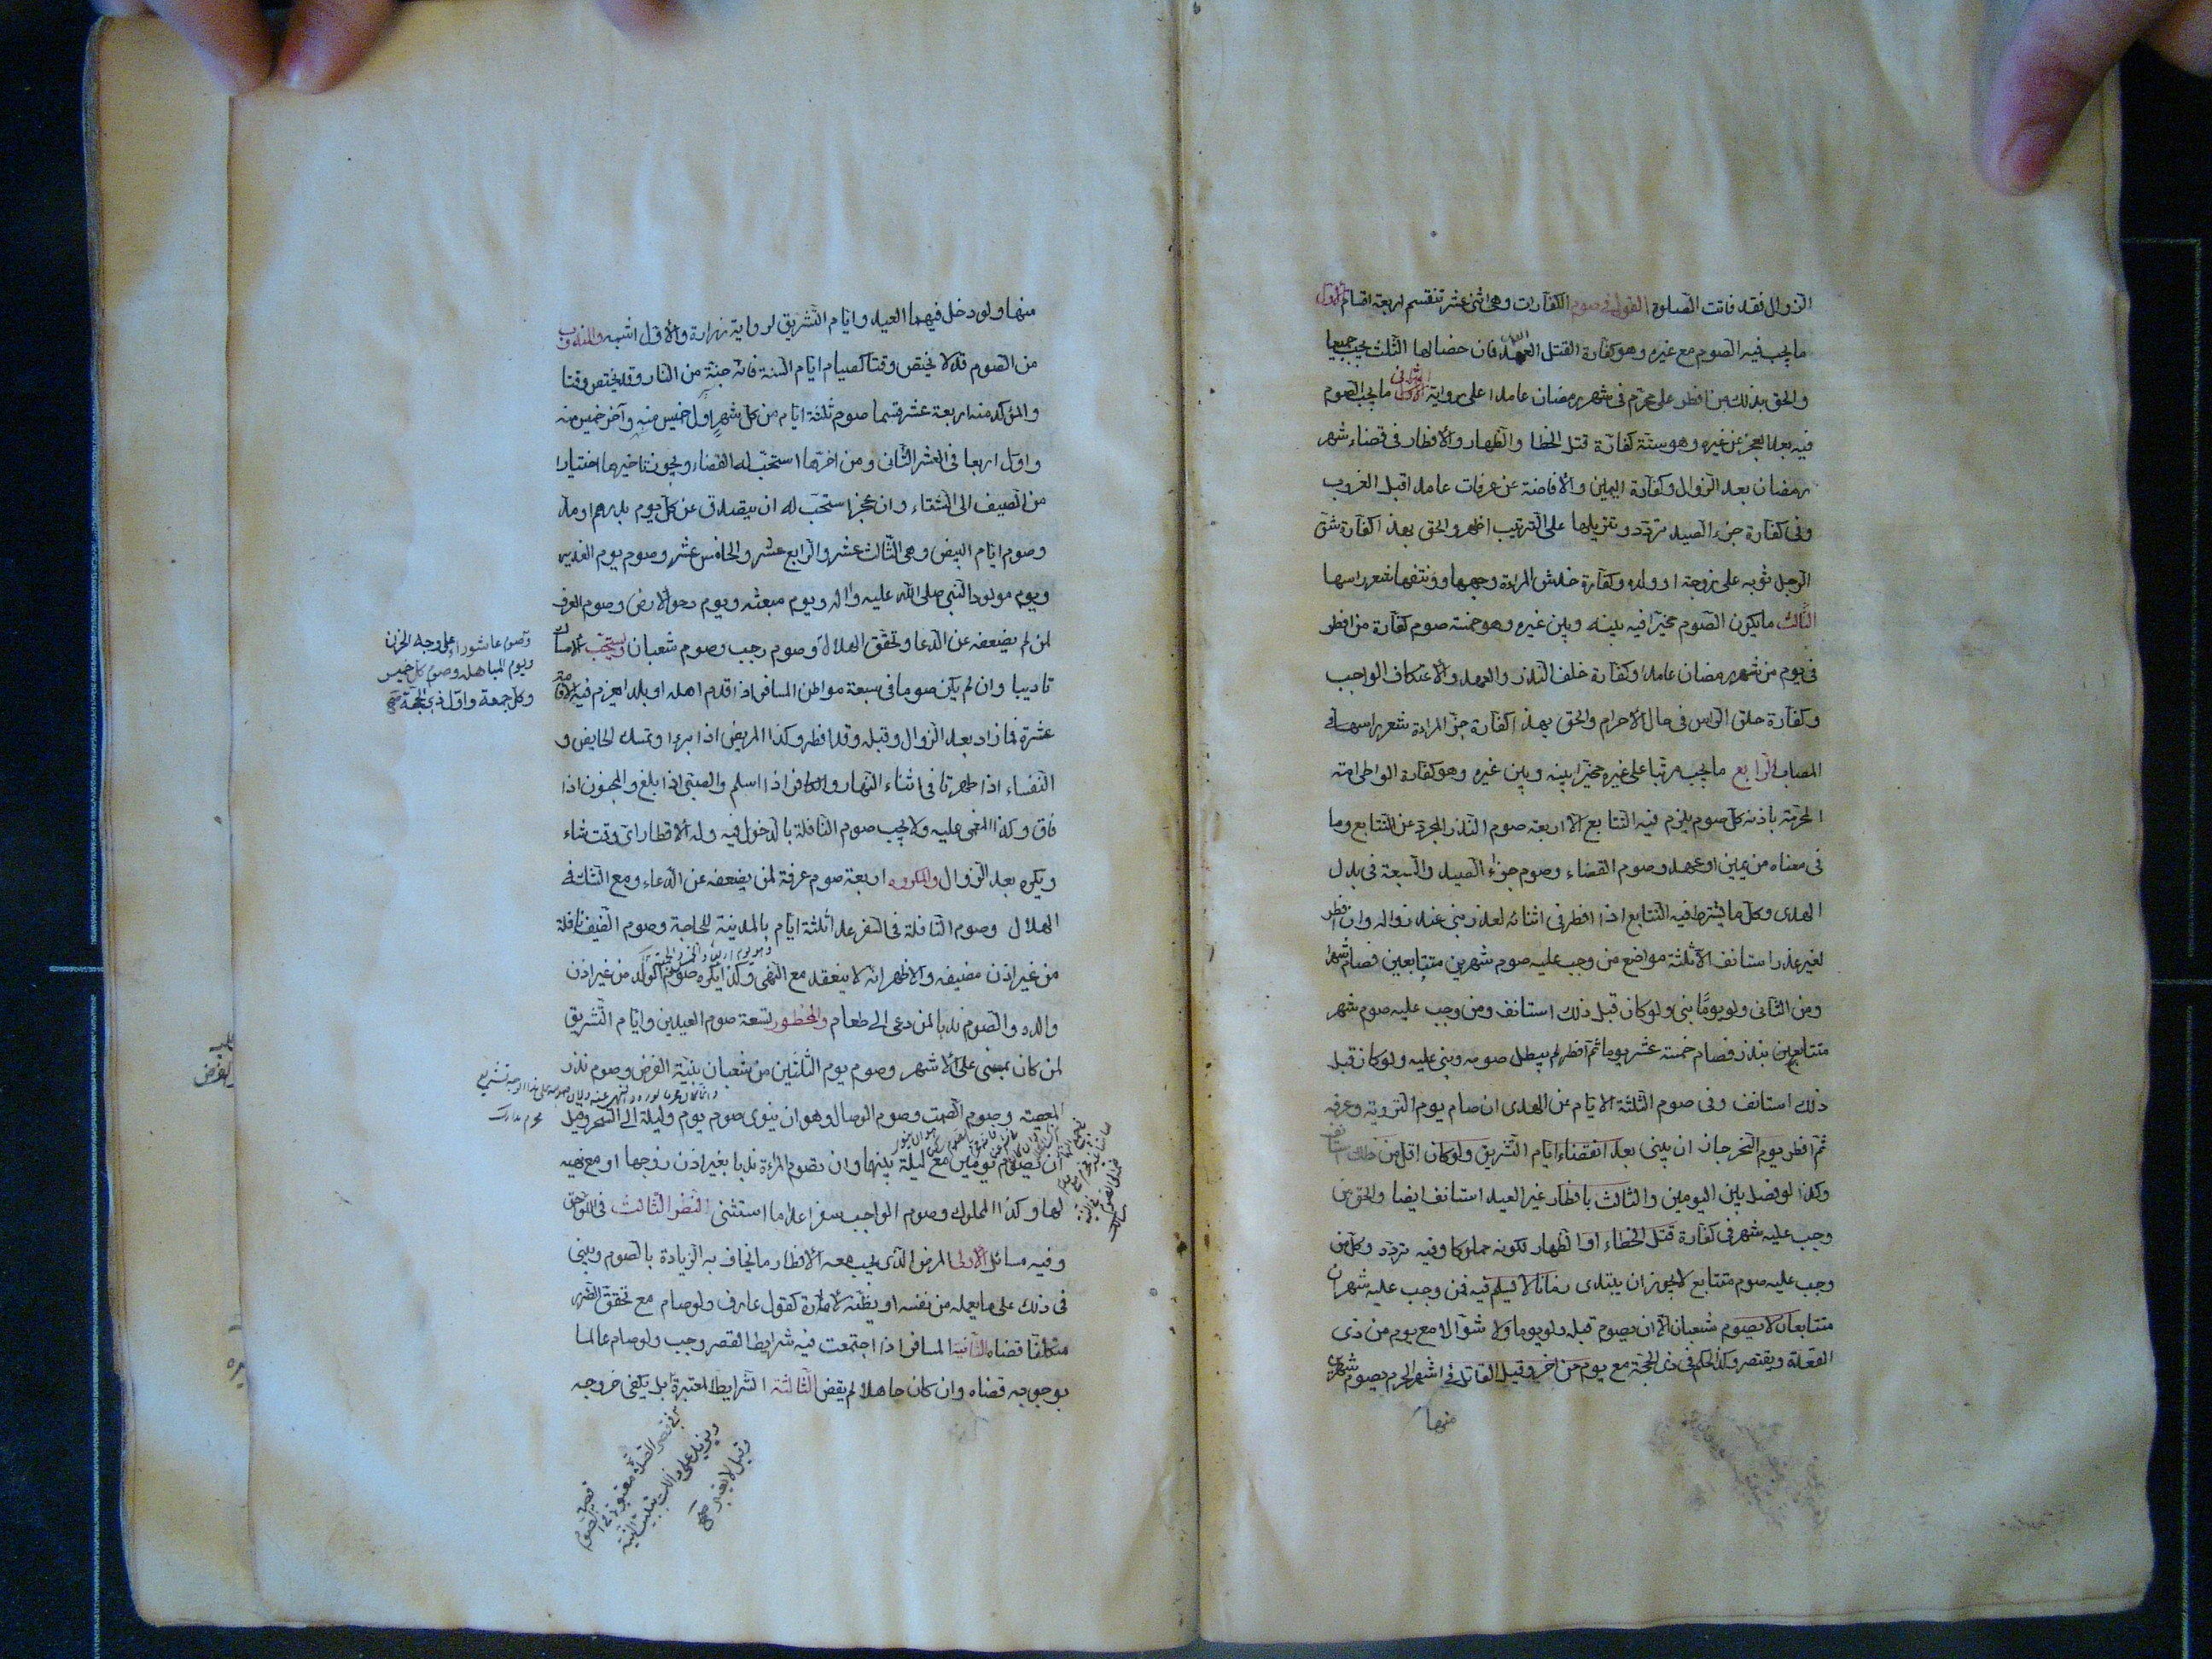 الزوال فقد فاتت الصلوة القول فى صوم الكفارات وهى اثنى عشر تنقسم اربعة اقسام الاول
ما يجب فيه الصوم مع غيره وهو كفارة القتل العمد فان خصالها الثلث يجب جميعا
والحق بذلك من افطر على محرم فى شهر رمضان عامدا على رواية الثانى ما يجب الصوم
فيه بعد العجز عن غيره وهو ستة كفارة قتل الخطا والظهار والافطار فى قضاء شهر
رمضان بعد الزوال وكفارة اليمين والافاضة عن عرفات عامدا قبل الغروب
وفى كفارة جزء الصيد تردد وتنزيلها على الترتيب اظهر والحق بهذ اكفارة شق
الرجل ثوبه على زوجته او ولده وكفارة خدش المراءة وجهها وونتفها شعر راسها
الثالث ما يكون الصوم مخيرا فيه بينه وبين غيره وهو خمسة صوم كفارة من افطر
فى يوم من شهر رمضان عامدا وكفارة خلف النذر والعهد والاعتكاف الواجب
وكفارة حلق الراس فى حال الاحرام والحق بهذ اكفارة جز المراءة شعر راسها فى
المصاب الرابع ما يجب مرتبا على غيره مخيرا بينه وبين غيره وهو كفارة الواطى امته
المحرمة باذنه كل صوم يلزم فيه التتابع الا اربعة صوم النذر المجرد عن التتابع وما
فى معناه من يمين او عهد وصوم القضاء وصوم جزاء الصيد والسبعة فى بدل
الهدى وكل ما يشترط فيه التتابع اذا افطر فى اثنائه لعذر بنى عند زواله وان افطر
لغير عذر استانف الا ثلثة مواضع من وجب عليه صوم شهرين متتابعين فصام شهرا
ومن الثانى ولو يوما بنى ولو كان قبل ذلك استانف ومن وجب عليه صوم شهر
متتابعين بنذر فصام خمسة عشر يوما ثم افطر لم يبطل صومه وبنى عليه ولو كان قبل
ذلك استانف وفى صوم الثلثة الايام عن الهدى ان صام يوم التروية وعرفة
ثم افطر يوم النحر جاز ان يبنى بعد انقضاء ايام التشريق ولو كان اقل من ذلك استانف
وكذا لو فصل بين اليومين والثالث بافطار غير العيد استانف ايضا والحق من
وجب عليه شهر فى كفارة قتل الخطاء او الظهار لكونه مملوكا وفيه تردد وكل من
وجب عليه صوم متتابع لا يجوز ان يبتدى زمانا لا يسلم فيه فمن وجب عليه شهران
متتابعان لا يصوم شعبان الا ان يصوم قبله ولو يوما ولا شوالا مع يوم من ذى
القعدة ويقتصر وكذا الحكم فى ذى الحجة مع يوم من اخر وقيل القاتل فى اشهر الحرم يصوم شهرين
منها
منها ولو دخل فيهما العيد وايام التشريق لرواية زرارة والاول اشبه والمندوب
من الصوم قد لا يختص وقتا كصيام ايام السنة فانه جنة من النار وقد يختص وقتا
والمؤكد منه اربعة عشر قسما صوم ثلثة ايام من كل شهر اول خميس منه وآخر خميس منه
واول اربعا فى العشر الثانى ومن اخرها استحب له القضاء ويجوز تاخيرها اختيارا
من الصيف الى الشتاء وان عجز استحب له ان يتصدق عن كل يوم بدرهم او مد
وصوم ايام البيض وهى الثالث عشر والرابع عشر والخامس عشر وصوم يوم الغدير
ويوم مولود النبى صلى الله عليه واله ويوم مبعثه ويوم دحو الارض وصوم العرفه
لمن لم يضعفه عن الدعا وتحقق الهلال وصوم رجب وصوم شعبان ويستحب الامساك
تاديبا وان لم يكن صوما فى سبعة مواطن المسافر اذا قدم اهله او بلد اعزم فيه الاقامة
عشرة فما زاد بعد الزوال وقبله وقد افطر وكذا المريض اذا برءا وتمسك الحايض و
النفساء اذا طهرتا فى اثناء النهار والكافر اذا اسلم والصبى اذا بلغ والمجنون اذا
فاق وكذا المغمى عليه ولا يجب صوم النافلة بالدخول فيه وله الافطار اى وقت شاء
ويكره بعد الزوال والمكروه اربعة صوم عرفة لمن يضعفه عن الدعاء ومع الشك فى
الهلال وصوم النافلة فى السفر عدا ثلثة ايام بالمدينة للحاجة وصوم الضيف نافلة
من غير اذن مضيفه والاظهر انه لا ينعقد مع النهى وكذا يكره صوم الولد من غير اذن
والده والصوم ندبا لمن دعى الى طعام والمحظور تسعة صوم العيدين وايام التشريق
لمن كان بمنى على الاشهر وصوم يوم الثلثين من شعبان بنية الفرض وصوم نذر
المعصية وصوم الصمت وصوم الوصال وهو ان ينوى صوم يوم وليلة الى السحر وقيل
ان يصوم يومين مع ليلة بينهما وان تصوم المراءة ندبا بغير اذن زوجها او مع نهيه
لها وكذا المملوك وصوم الواجب سفرا عدا ما استثنى النظر الثالث فى اللواحق
وفيه مسائل الاولى المرض الذى يجب معه الافطار ما يخاف به الزيادة بالصوم ويبنى
فى ذلك على ما يعمله من نفسه او يظنه لامارة كقول عارف ولو صام مع تحقق الضرر
متكلفا قضاه الثانية المسافر اذا اجتمعت فيه شرايط القصر وجب ولو صام عالما
بوجوبه قضاه وان كان جاهلا لم يقض الثالثة الشرايط المعتبرة
وصوم عاشوراء على وجه الحزن
ويوم المباهله وصوم كل خميس
وكل جمعة واول ذى الحجة صح